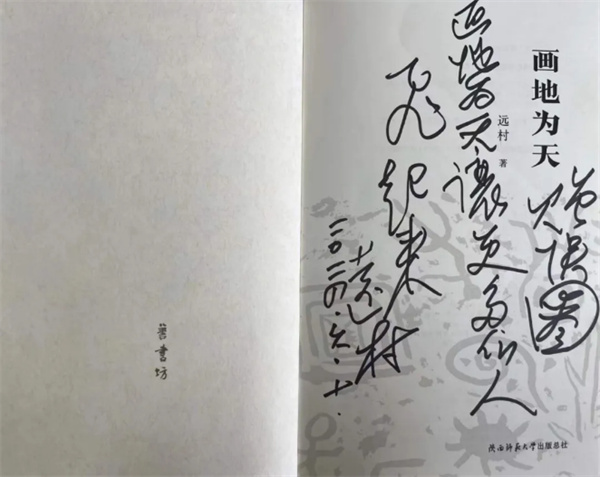 画地为天
远村 著
画地为天讓更多的人
飞起来
远村
二〇二四.六.十.
書坊
陕西师范大学出版总社